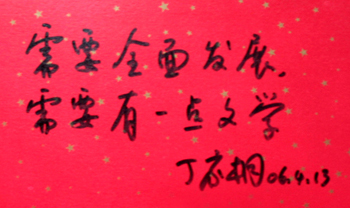 需要全面发展.
需要有一点文学
丁 06.4.13